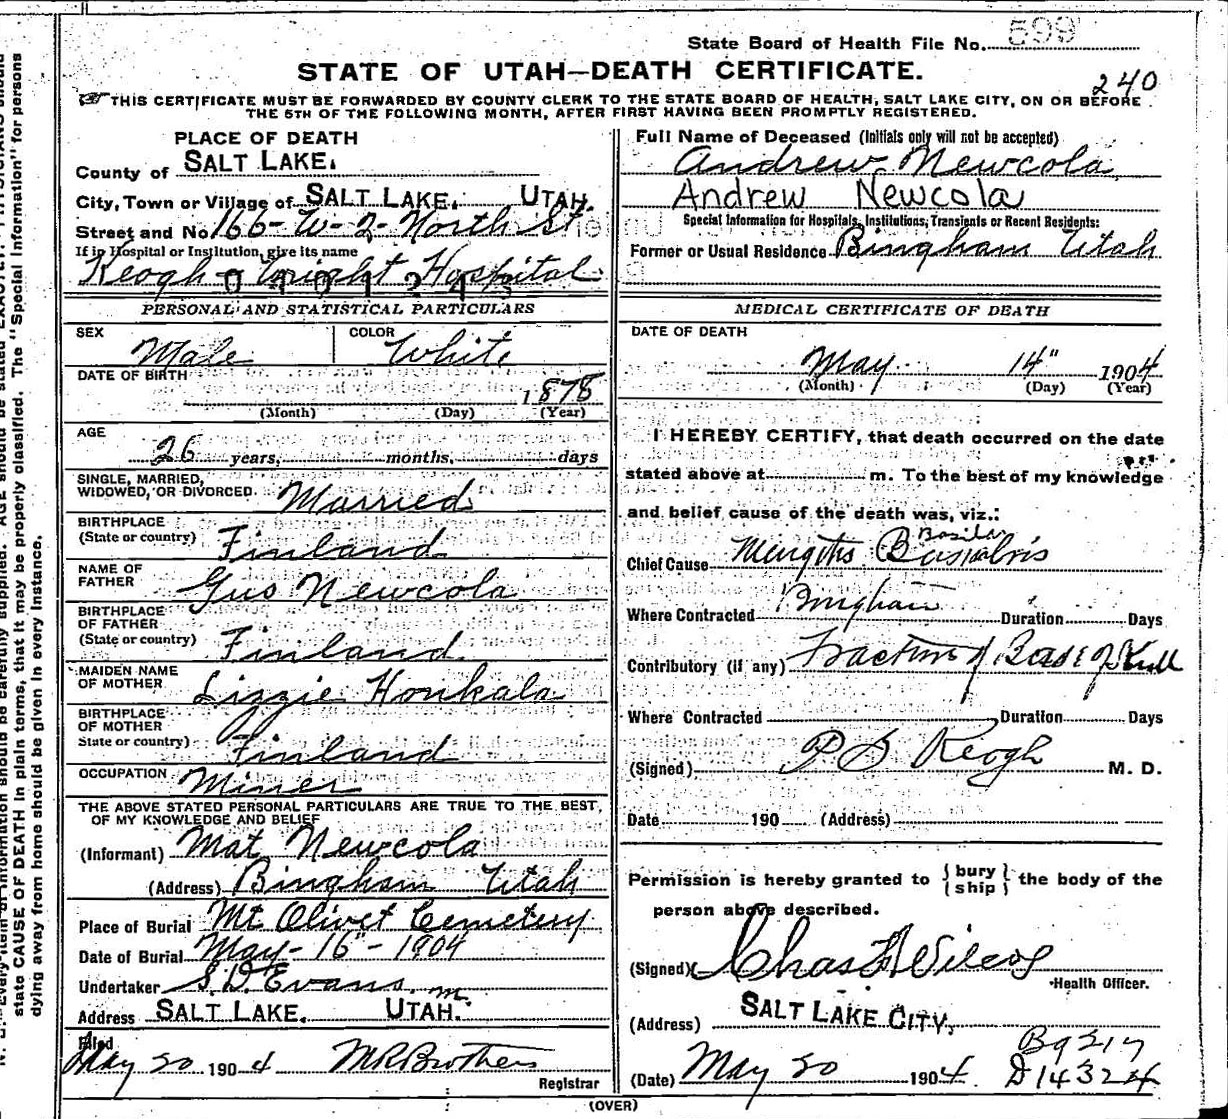 State Board of Health File No. 599
STATE OF UTAH—DEATH CERTIFICATE.
240
THIS CERTIFICATE MUST BE FORWARDED BY COUNTY CLERK TO THE STATE BOARD OF HEALTH, SALT LAKE CITY, ON OR BEFORE
THE 5TH OF THE FOLLOWING MONTH, AFTER FIRST HAVING BEEN PROMPTLY REGISTERED.
PLACE OF DEATH
County of SALT LAKE.
City, Town or Village of SALT LAKE. UTAH.
Street and No. 166-W-2-North St
If in Hospital or Institution, give its name
Keogh-Wright Hospital
PERSONAL AND STATISTICAL PARTICULARS
SEX Male
COLOR White
DATE OF BIRTH
1878
(Month) (Day) (Year)
AGE
26 years, months, days
SINGLE, MARRIED,
WIDOWED, OR DIVORCED. Married
BIRTHPLACE
(State or country) Finland
NAME OF
FATHER Gus Newcola
BIRTHPLACE
OF FATHER
(State or country) Finland
MAIDEN NAME
OF MOTHER Lizzie Honkala
BIRTHPLACE
OF MOTHER
State or country) Finland
OCCUPATION Miner
THE ABOVE STATED PERSONAL PARTICULARS ARE TRUE TO THE BEST
OF MY KNOWLEDGE AND BELIEF
(Informant) Mat Newcola
(Address) Bingham Utah
Place of Burial Mt Olivet Cemetery
Date of Burial May-16"-1904
Undertaker S. D. Evans
Address SALT LAKE. UTAH.
Filed
May 20 1904 M R Brothers
Registrar
Full Name of Deceased (Initials only will not be accepted)
Andrew Newcola
Andrew Newcola
Special Information for Hospitals, Institutions, Transients or Recent Residents:
Former or Usual Residence Bingham Utah
MEDICAL CERTIFICATE OF DEATH
DATE OF DEATH
May 14" 1904
(Month) (Day) (Year)
I HEREBY CERTIFY, that death occurred on the date
stated above at m. To the best of my knowledge
and belief cause of the death was, viz.:
Basilar
Chief Cause
Where Contracted Bingham Duration Days
Contributory (if any) Fracture of Base of Skull
Where Contracted Duration Days
(Signed) P S Keogh M. D.
Date 190 (Address)
Permission is hereby granted to { bury
ship } the body of the
person above described.
(Signed) Chas F Wilcox
Health Officer.
(Address) SALT LAKE CITY,
B9217
(Date) May 20 1904. D14324
(OVER)
state CAUSE OF DEATH in plain terms, that it may be properly classified. The "Special Information" for persons
dying away from home should be given in every instance.